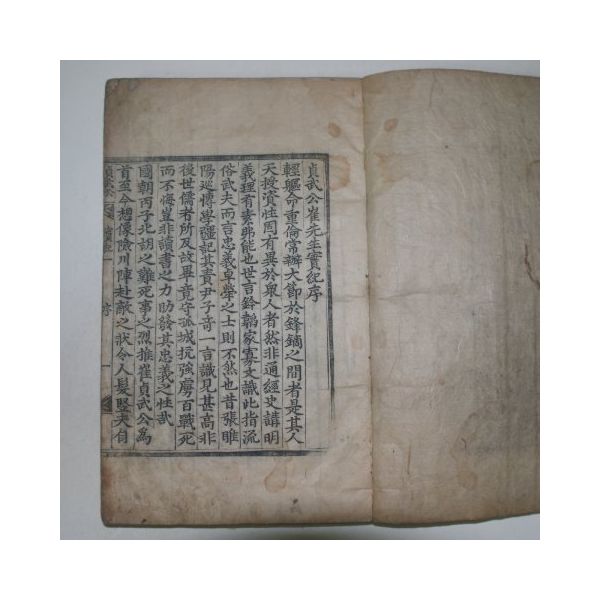 貞武公崔先生實紀序
輕軀命重倫常辦大節於鋒鏑之間者是其人
天授資性固有異於衆人者然非通經史講明
義理有素弗能也世言鈐韜家寡文識此指流
俗武夫而言忠義卓犖之士則不然也昔張睢
陽巡博學彊記其責尹子奇一言識見甚高非
後世儒者所及故畢竟守孤城抗強虜百戰死
而不悔豈非讀書之力助發其忠義之性哉
國朝丙子北胡之難死事之烈推崔貞武公爲
首至今想像險川陣赴敵之狀令人髮竪夫自
貞武公 序 一